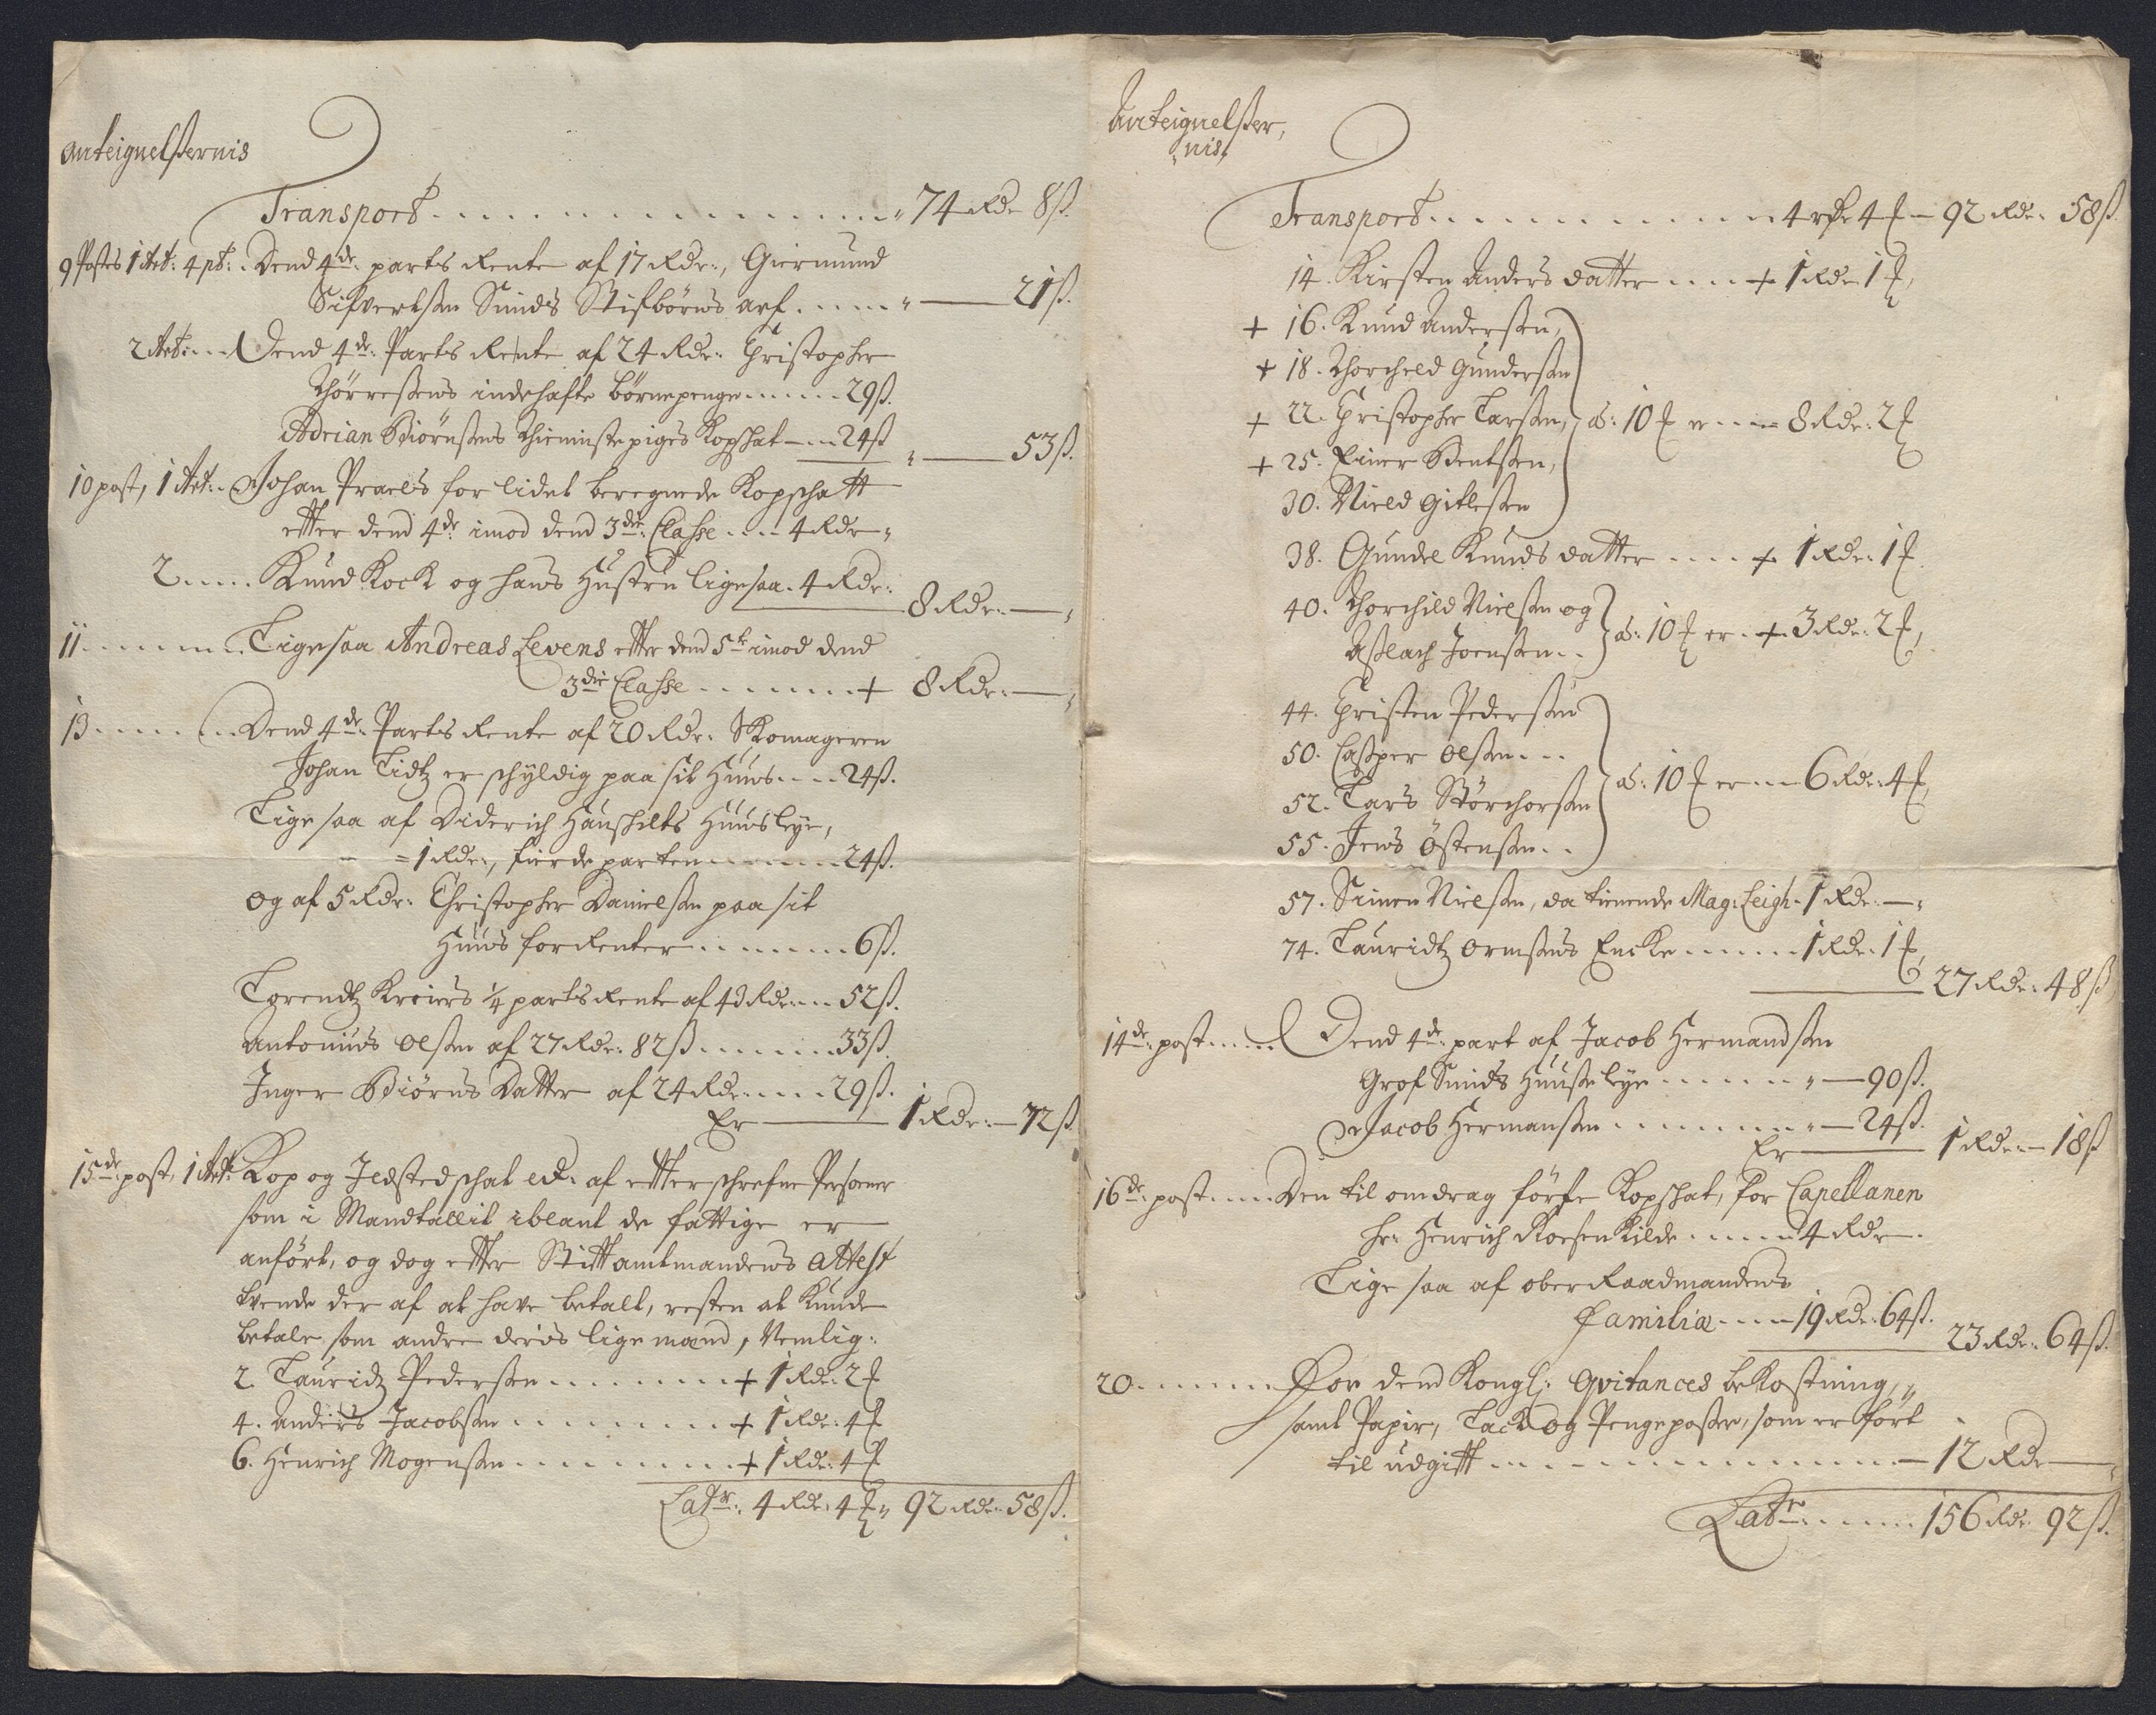 Anteignelßernis
Transport . . . . . . . . . . . . „ 74 Rdr 8ß.
9 Postes 1 Art: 4 pt: . Dend 4de parts Rente af 17 Rdr:, Giermund
Sifvertßen Sunds Stifbörns arf . . . . „ — 21ß.
2 Art: . . . Dend 4de: Parts Rente af 24 Rdr: Christopher
Thörresens indehafte börnepenge . . . . . 29ß.
Adrian Biörnßens thienniste piges Kopschat — . . 24ß
„ — 53ß.
10 post, 1 Art: . Johan Praels for lidet beregnede Kopschatt
etter dend 4de imod dend 3die Classe . . . . 4 Rdr „
2 . . . . Knud Kock og hans Hustru ligesaa . 4 Rdr:
8 Rdr: — „
11 . . . . . . Ligesaa Andreas Levens etter dend 5te imod dend
3die Classe . . . . . . + 8 Rdr: — „
13 . . . . . . Dend 4de: Parts Rente af 20 Rdr: Skomageren
Johan Tidtz er schyldig paa sit Huus . . . . 24ß.
Lige saa af Diderich Haushilts Huusleye,
= 1 Rdr:, fierde parten . . . . . . 24ß.
og af 5 Rdr: Christopher Danielßen paa sit
Huus for Renter . . . . . . . 6ß.
Lorendtz Kreiers 1/4 parts Rente af 43 Rdr: . . . 52ß.
Antonius Olßen af 27 Rdr: 82ß . . . . . . 33ß.
Inger Biörns Datter af 24 Rdr . . . . 29ß.
Er — 1 Rdr: — 72ß.
15de post, 1 Art: Kop og Ildsted schat etc. af etterschrefne Personer
som i Mandtallit iblant de fattige er
anfört, og dog etter Stiftamtmandens Attest
tvende der af at have betalt, resten at kunde
betale som andre deris lige mænd, Nemlig:
2. Lauridz Pederßen . . . . . . . + 1 Rdr: 2 ƶ
4. Anders Jacobßen . . . . . . . + 1 Rdr: 4 ƶ
6. Henrich Mogenßen . . . . . . . + 1 Rdr: 4 ƶ
Latr: 4 Rdr: 4 ƶ „ 92 Rdr: 58ß.
Anteignelßer,
„nis,
Transport . . . . . . . . . . . 4 4 ƶ — 92 Rdr: 58ß.
14. Kirsten Anders datter . . . . + 1 Rdr 1 ƶ,
+ 16. Knud Anderßen,
+ 18. Thorcheld Gunderßen
+ 22. Christopher Larßen, a: 10 ƶ er . . . . 8 Rdr: 2 ƶ
+ 25. Einer Bentßen,
30. Nield Gitleßen
38. Gundel Knuds datter . . . . + 1 Rdr: 1 ƶ.
40. Thorchild Nielßen og
Aslach Joenßen . . a: 10 ƶ er . + 3 Rdr: 2 ƶ,
44. Christen Pederßen
50. Casper Olßen . . .
52. Lars Störchorßen a: 10 ƶ er . . . 6 Rdr: 4 ƶ,
55. Jens Östenßen . .
57. Simen Nielßen, da tienende Mag: Leigh - 1 Rdr: — „
74. Lauridtz Ormßens Encke . . . . . 1 Rdr: 1 ƶ,
27 Rdr: 48ß
14de: post . . . . Dend 4de: part af Jacob Hermandßen
Grof Smids Huußleye . . . . . . „ — 90ß.
Jacob Hermanßen . . . . . . . . „ — 24ß.
Er — 1 Rdr: — 18ß
16de: post . . . Den til omdrag förte Kopschat, for Capellanen
hr: Henrich Roesenkilde . . . . . 4 Rdr.
Lige saa af ober Raadmandens
Familia . . . . 19 Rdr: 64ß.
23 Rdr: 64ß.
20. . . . . . . For dend Kongl: Qvitances bekostning, „
samt Papir, Lack og Pengeposser, som er fört
til udgift . . . . . . . . . . . . . — 12 Rdr — „
Latr . . . . . 156 Rdr: 92ß.